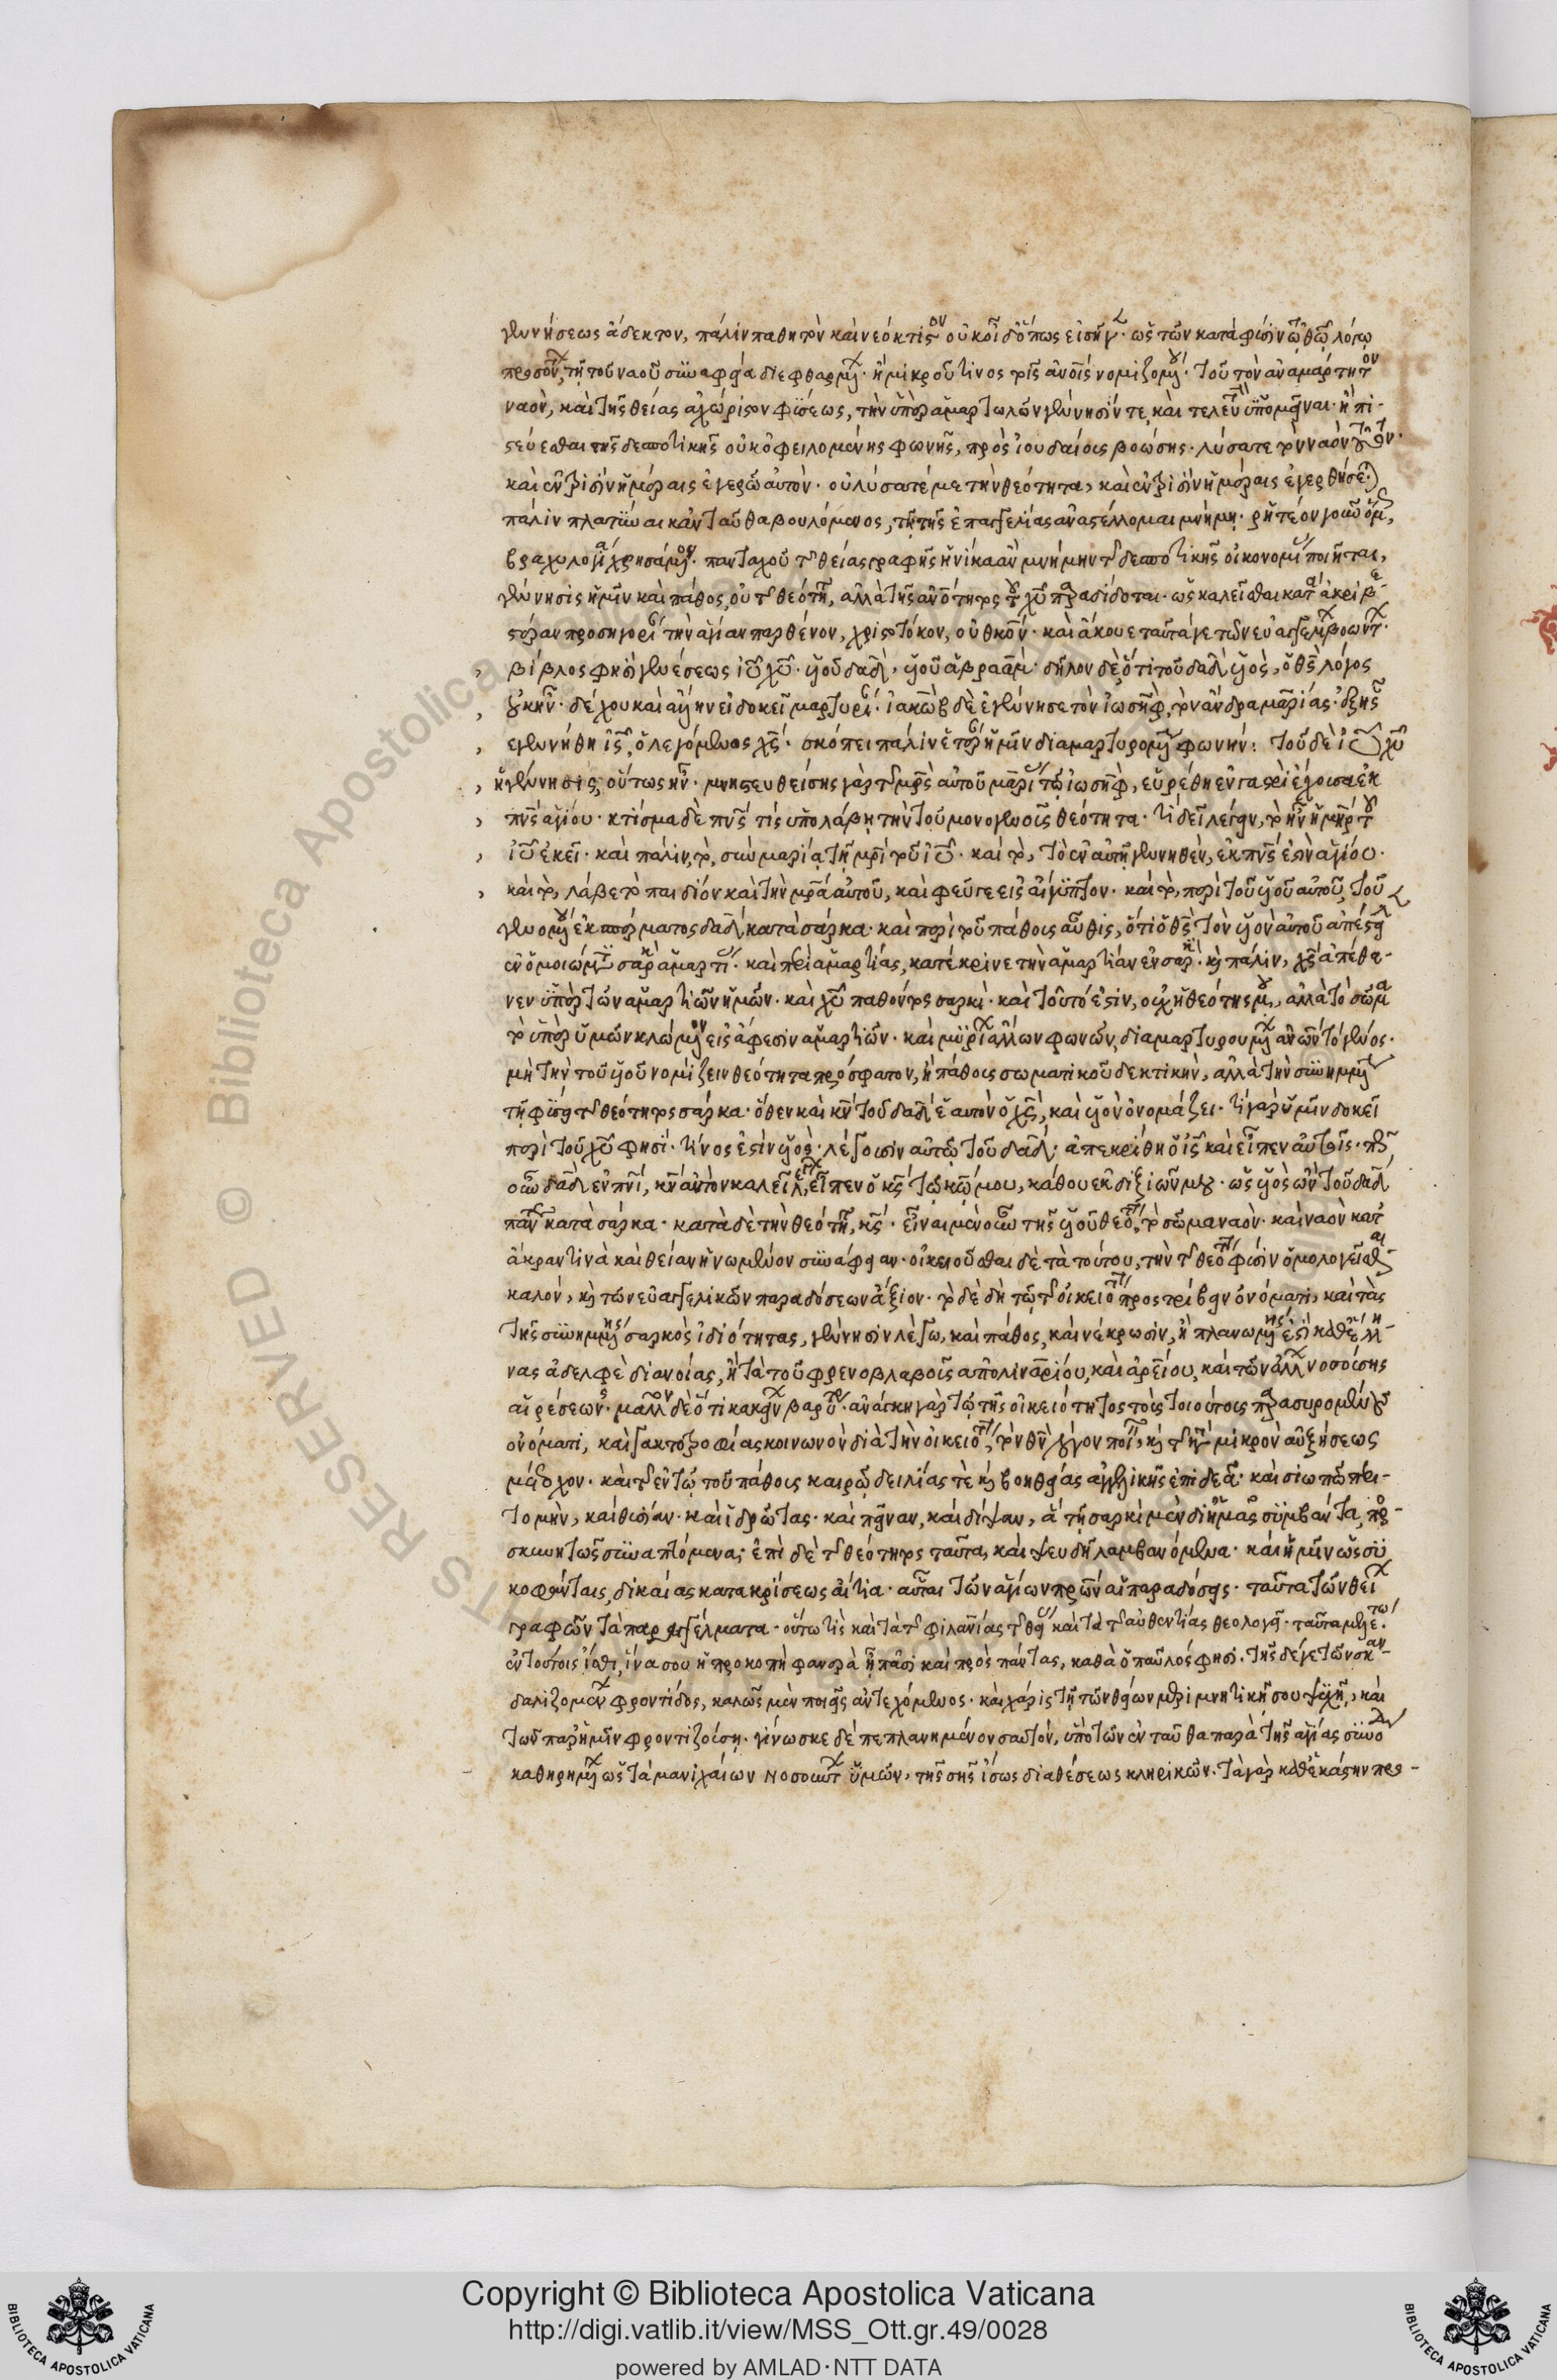 γεννήσεως ἄδεκτον, πάλιν παθητὸν καὶ νεόκτιστον οὐκ οἶδ' ὅπως εἰσῆγε. ὡς τῶν κατὰ φύσιν τῷ θεῷ λόγῳ
προσόντων, τῇ τοῦ ναοῦ συναφείᾳ διεφθαρμένων. ἢ μικροῦ τινος τοῖς ἀνθρώποις νομιζομένου. τοῦ τὸν ἀναμάρτητον
ναὸν, καὶ τῆς θείας ἀχώριστον φύσεως, τὴν ὑπὲρ ἁμαρτωλῶν γέννησίν τε, καὶ τελευτὴν ὑπομεῖναι. ἢ πι-
στεύεσθαι τῆς δεσποτικῆς οὐκ ὀφειλομένης φωνῆς, πρὸς ἰουδαίους βοώσης. λύσατε τὸν ναὸν τοῦτον.
καὶ ἐν τρισὶν ἡμέραις ἐγερῶ αὐτόν. οὐ λύσατέ με τὴν θεότητα, καὶ ἐν τρισὶν ἡμέραις ἐγερθήσεται.
πάλιν πλατῦναι κἀνταῦθα βουλόμενος, τῇ τῆς ἐπαγγελίας ἀναστέλλομαι μνήμῃ. ῥητέον γοῦν ὅμως,
βραχυλογίᾳ χρησάμενον. πανταχοῦ τῆς θείας γραφῆς ἡνίκα ἂν μνήμην τῆς δεσποτικῆς οἰκονομίας ποιῆται,
γέννησις ἡμῖν καὶ πάθος, οὐ τῆς θεότητος, ἀλλὰ τῆς ἀνθρωπότητος τοῦ χυ παραδίδοται. ὡς καλεῖσθαι κατὰ ἀκριβε-
στέραν προσηγορίαν τὴν ἁγίαν παρθένον, χριστοτόκον, οὐ θκον. καὶ ἄκουε ταῦτά γε τῶν εὐαγγελίων βοώντων.
βίβλος φησὶ γενέσεως ιυ χυ. υἱοῦ δαδ, υἱοῦ ἀβραάμ. δῆλον δὲ ὅτι τοῦ δαδ υἱὸς, ὁ θς λόγος
οὐκ ἦν. δέχου καὶ ἄλλην εἰ δοκεῖ μαρτυρίαν. ἰακὼβ δὲ ἐγέννησε τὸν ἰωσὴφ, τὸν ἄνδρα μαρίας. ἐξ ἧς
ἐγεννήθη ις, ὁ λεγόμενος χς. σκόπει πάλιν ἑτέραν ἡμῖν διαμαρτυρομένην φωνήν: τοῦ δὲ ιυ χυ
ἡ γέννησις, οὕτως ἦν. μνηστευθείσης γὰρ τῆς μρς αὐτοῦ μαρίας τῷ ἰωσὴφ, εὑρέθη ἐν γαστρὶ ἔχουσα ἐκ
πνς ἁγίου. κτίσμα δὲ πνς τίς ὑπολάβῃ τὴν τοῦ μονογενοῦς θεότητα. τί δεῖ λέγειν, τὸ ἦν ἡ μηρ τοῦ
ιυ ἐκεῖ. καὶ πάλιν, τὸ, σὺν μαρίᾳ τῇ μρι τοῦ ιυ. καὶ τὸ, τὸ ἐν αὐτῇ γεννηθὲν, ἐκ πνς ἐστὶν ἁγίου.
καὶ τὸ, λάβε τὸ παιδίον καὶ τὴν μρα αὐτοῦ, καὶ φεῦγε εἰς αἴγυπτον. καὶ τὸ, περὶ τοῦ υἱοῦ αὐτοῦ, τοῦ
γενομένου ἐκ σπέρματος δαδ κατὰ σάρκα. καὶ περὶ τοῦ πάθους αὖθις, ὅτι ὁ θς τὸν υἱὸν αὐτοῦ ἀπέστειλεν
ἐν ὁμοιώματι σαρκὸς ἁμαρτίας. καὶ περὶ ἁμαρτίας, κατέκρινε τὴν ἁμαρτίαν ἐν σαρκί. καὶ πάλιν, χς ἀπέθα-
νεν ὑπὲρ τῶν ἁμαρτιῶν ἡμῶν. καὶ χυ παθόντος σαρκί. καὶ τοῦτό ἐστιν, οὐχ ἡ θεότης μου, ἀλλὰ τὸ σῶμα
τὸ ὑπὲρ ὑμῶν κλώμενον εἰς ἄφεσιν ἁμαρτιῶν. καὶ μυρίων ἄλλων φωνῶν, διαμαρτυρουμένων τῶν ἀνων τὸ γένος.
μὴ τὴν τοῦ υἱοῦ νομίζειν θεότητα πρόσφατον, ἢ πάθους σωματικοῦ δεκτικὴν, ἀλλὰ τὴν συνημμένην
τῇ φύσει τῆς θεότητος σάρκα. ὅθεν καὶ κν τοῦ δαδ ἑαυτὸν ὁ χς, καὶ υἱὸν ὀνομάζει. τί γὰρ ὑμῖν δοκεῖ
περὶ τοῦ χυ φησί. τίνος ἐστὶν υἱός. λέγουσιν αὐτῷ τοῦ δαδ. ἀπεκρίθη ὁ ις καὶ εἶπεν αὐτοῖς. πῶς
οὖν δαδ ἐν πνι, κν αὐτὸν καλεῖ λέγων, εἶπεν ὁ κς τῷ κῳ μου, κάθου ἐκ δεξιῶν μου. ὡς υἱὸς ὢν τοῦ δαδ
πάντως κατὰ σάρκα. κατὰ δὲ τὴν θεότητα, κς. εἶναι μὲν οὖν τῆς υἱοῦ θεότητος, τὸ σῶμα ναὸν. καὶ ναὸν κατ'
ἄκραν τινὰ καὶ θείαν ἡνωμένον συνάφειαν. οἰκειοῦσθαι δὲ τὰ τούτου, τὴν τῆς θεότητος φύσιν ὁμολογεῖσθαι
καλόν, καὶ τῶν εὐαγγελικῶν παραδόσεων ἄξιον. τὸ δὲ δὴ τῷ τῆς οἰκειότητος προστρίβειν ὀνόματι, καὶ τὰς
τῆς συνημμένης σαρκὸς ἰδιότητας, γέννησιν λέγω, καὶ πάθος, καὶ νέκρωσιν, ἢ πλανωμένης ἐστὶ καθ' ἕλλη-
νας ἀδελφὲ διανοίας, ἢ τὰ τοῦ φρενοβλαβοῦς ἀπολιναρίου, καὶ ἀρείου, καὶ τῶν ἄλλων νοσούσης
αἱρέσεων. μᾶλλον δὲ ὅτι κἀκείνων βαρύτερον. ἀνάγκη γὰρ τῷ τῆς οἰκειότητος τοὺς τοιούτους παρασυρομένους
ὀνόματι, καὶ γαλακτοτροφίας κοινωνὸν διὰ τὴν οἰκειότητα, τὸν θν λόγον ποιεῖν, καὶ τῆς κατὰ μικρὸν αὐξήσεως
μέτοχον. καὶ τῆς ἐν τῷ τοῦ πάθους καιρῷ δειλίας τὲ καὶ βοηθείας ἀγγελικῆς ἐπιδεᾶ. καὶ σιωπῶ περι-
τομὴν, καὶ θυσίαν. καὶ ἱδρῶτας. καὶ πεῖναν, καὶ δίψαν, ἃ τῇ σαρκὶ μὲν δι' ἡμᾶς συμβάντα, προ-
σκυνητῶς συναπτόμενα· ἐπὶ δὲ τῆς θεότητος ταῦτα, καὶ ψευδῆ λαμβανόμενα. καὶ ἡμῖν ὡς συ
κοφάνταις, δικαίας κατακρίσεως αἴτια. αὗται τῶν ἁγίων πρων αἱ παραδόσεις. ταῦτα τῶν θείων
γραφῶν τὰ παραγγέλματα. οὕτω τὶς καὶ τὰ τῆς φιλανίας τῆς θείας καὶ τὰ τῆς αὐθεντίας θεολογεῖ. ταῦτα μελέτω.
ἐν τούτοις ἴσθι, ἵνα σου ἡ προκοπὴ φανερὰ ᾖ πᾶσι καὶ πρὸς πάντας, καθὰ ὁ παῦλός φησι. τῆς δέ γε τῶν σκαν-
δαλιζομένων φροντίδος, καλῶς μὲν ποιεῖς ἀντεχόμενος. καὶ χάρις τῇ τῶν θείων μεριμνητικῇ σου ψυχῇ, καὶ
τῶν παρ' ἡμῖν φροντιζούσῃ. γίνωσκε δὲ πεπλανημένον σαυτόν, ὑπὸ τῶν ἐνταῦθα παρὰ τῆς ἁγίας συνόδου
καθῃρημένων ὡς τὰ μανιχαίων νοσούντων ὑμῶν, τῆς σῆς ἴσως διαθέσεως κληρικῶν. τὰ γὰρ καθ' ἑκάστην προ-
Copyright © Biblioteca Apostolica Vaticana
http://digi.vatlib.it/view/MSS_Ott.gr.49/0028
powered by AMLAD·NTT DATA